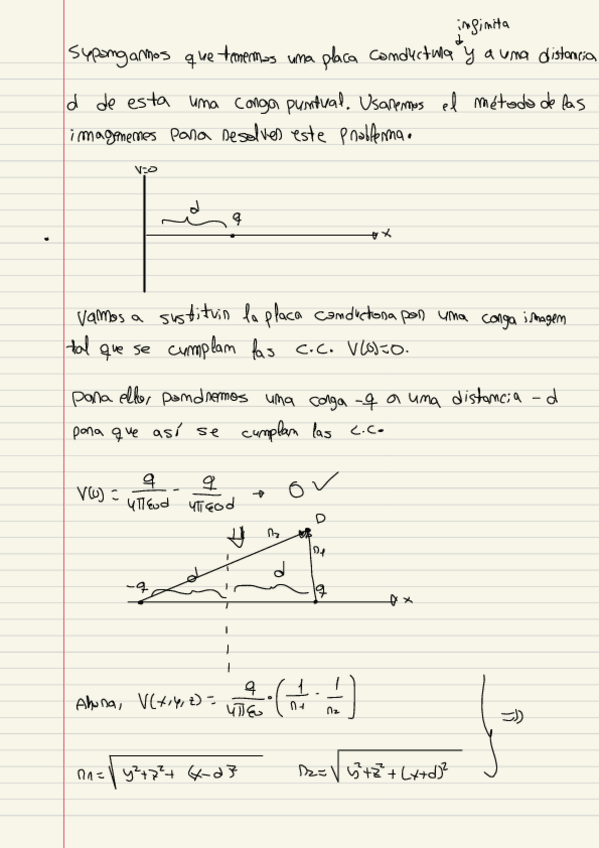 infinita
Supongamos que tenemos una placa conductora y a una distancia
d de esta una carga puntual. Usaremos el método de las
imagenenes para resolver este problema.
V=0
d
q
x
Vamos a sustituir la placa conductora por una carga imagen
tal que se cumplan las C.C. V(0)=0.
Para ello, pondremos una carga -q a una distancia -d
para que así se cumplan las C.C.
V(0) = q/4πε0d - q/4πε0d → 0 ✓
r2
r1
-q
d
d
q
x
Ahora, V(x,y,z) = q/4πε0 · (1/r1 - 1/r2) ⇒
r1 = √(y²+z²+(x-d)²) r2 = √(y²+z²+(x+d)²)